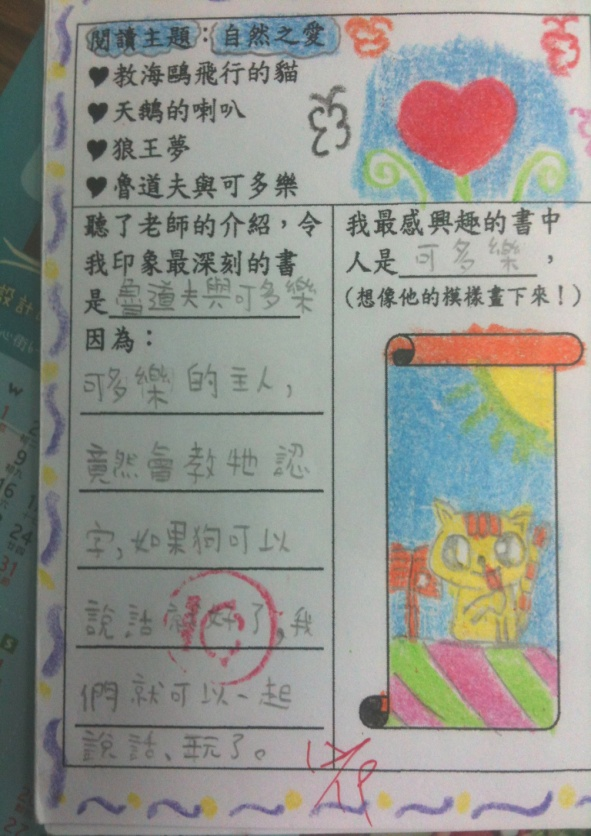 閱讀主題：自然之愛
♥教海鷗飛行的貓
♥天鵝的喇叭
♥狼王夢
♥魯道夫與可多樂
聽了老師的介紹，令
我印象最深刻的書
是魯道夫與可多樂
因為：
可多樂的主人，
竟然會教牠認
字，如果狗可以
說話就好了，我
們就可以一起
說話、玩了。
我最感興趣的書中
人是可多樂，
(想像他的模樣畫下來！)
設計
W
1
9
16
24
31
S
27